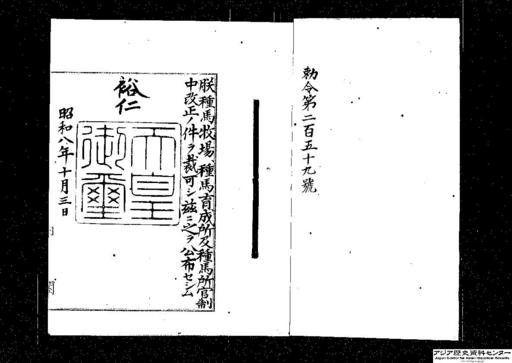 勅令第二百五十九號
朕種馬牧場、種馬育成所及種馬所官制
中改正ノ件ヲ裁可シ茲ニ之ヲ公布セシム
裕仁
天皇
御璽
昭和八年十月三日
アジア歴史資料センター
Japan Center for Asian Historical Records